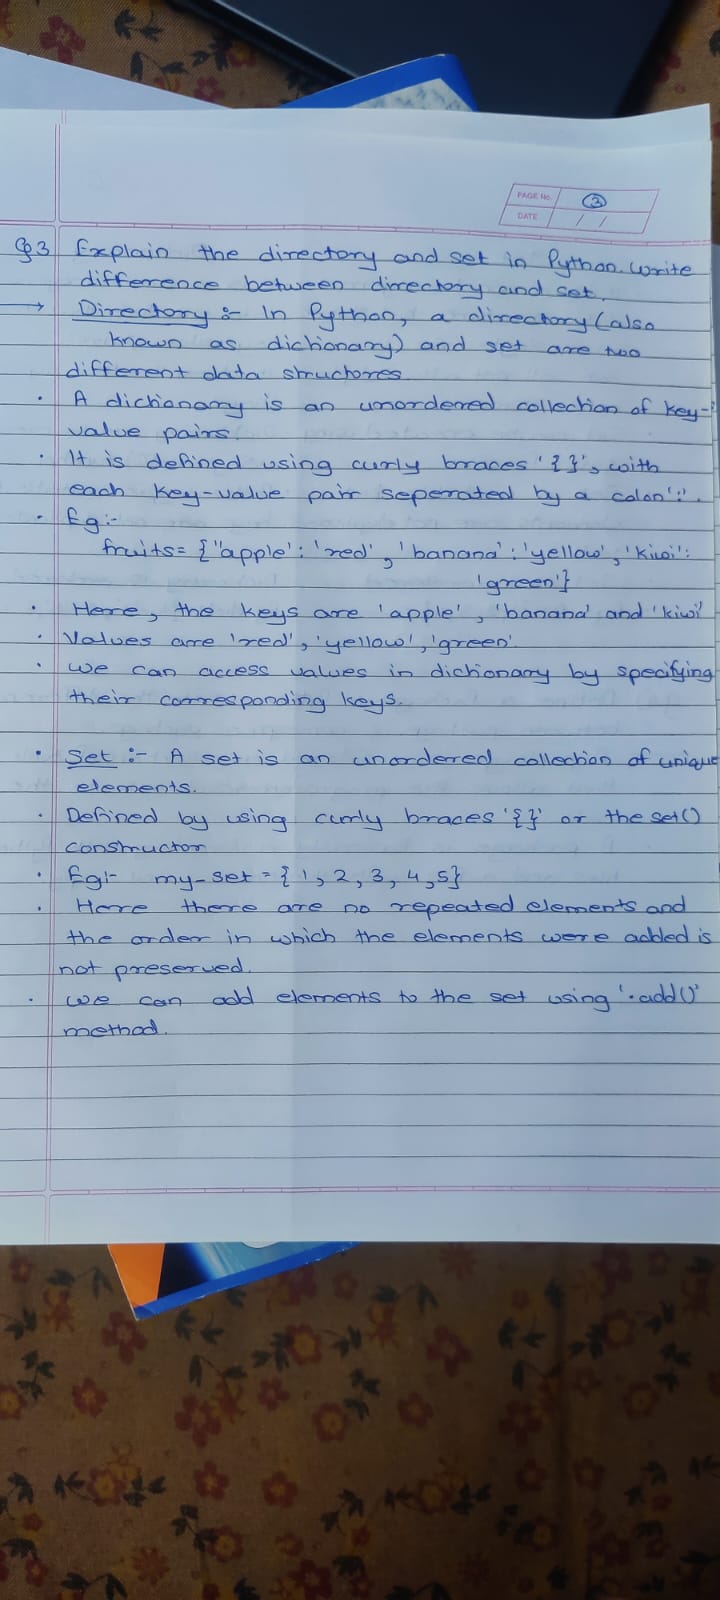 PAGE No. 3
DATE / /
Q3 Explain the directory and set in Python. write
difference between directory and set.
→ Directory :- In Python, a directory (also
known as dichionary) and set are two
different data structores
· A dichionary is an unordered collection of key-
value pairs.
· It is defined using curly braces '{}', with
each key-value pair seperated by a colon':'.
· Eg:-
fruits= {"apple': 'red', 'banana': 'yellow', 'kiwi':
'green'}
· Here, the keys are 'apple', 'banana' and 'kiwi'
· Values are 'red', 'yellow', 'green'.
· we can access values in dichionary by specifying
their corresponding keys.
· Set :- A set is an unordered collection of unique
elements.
· Defined by using curly braces '{}' or the set()
constructor
· Eg:- my-set = {1, 2, 3, 4, 5}
· Here there are no repeated elements and
the order in which the elements were added is
not preserved.
· we can add elements to the set using '.add()'
method.